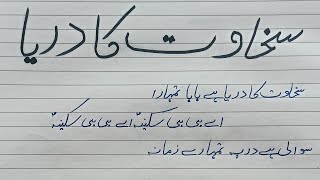 سخاوت کا دریا
سخاوت کا دریا ہے بابا تمہارا
اے بی بی سکینہؑ اے بی بی سکینہؑ
سوالی ہے در پہ تمہارے زمانہ